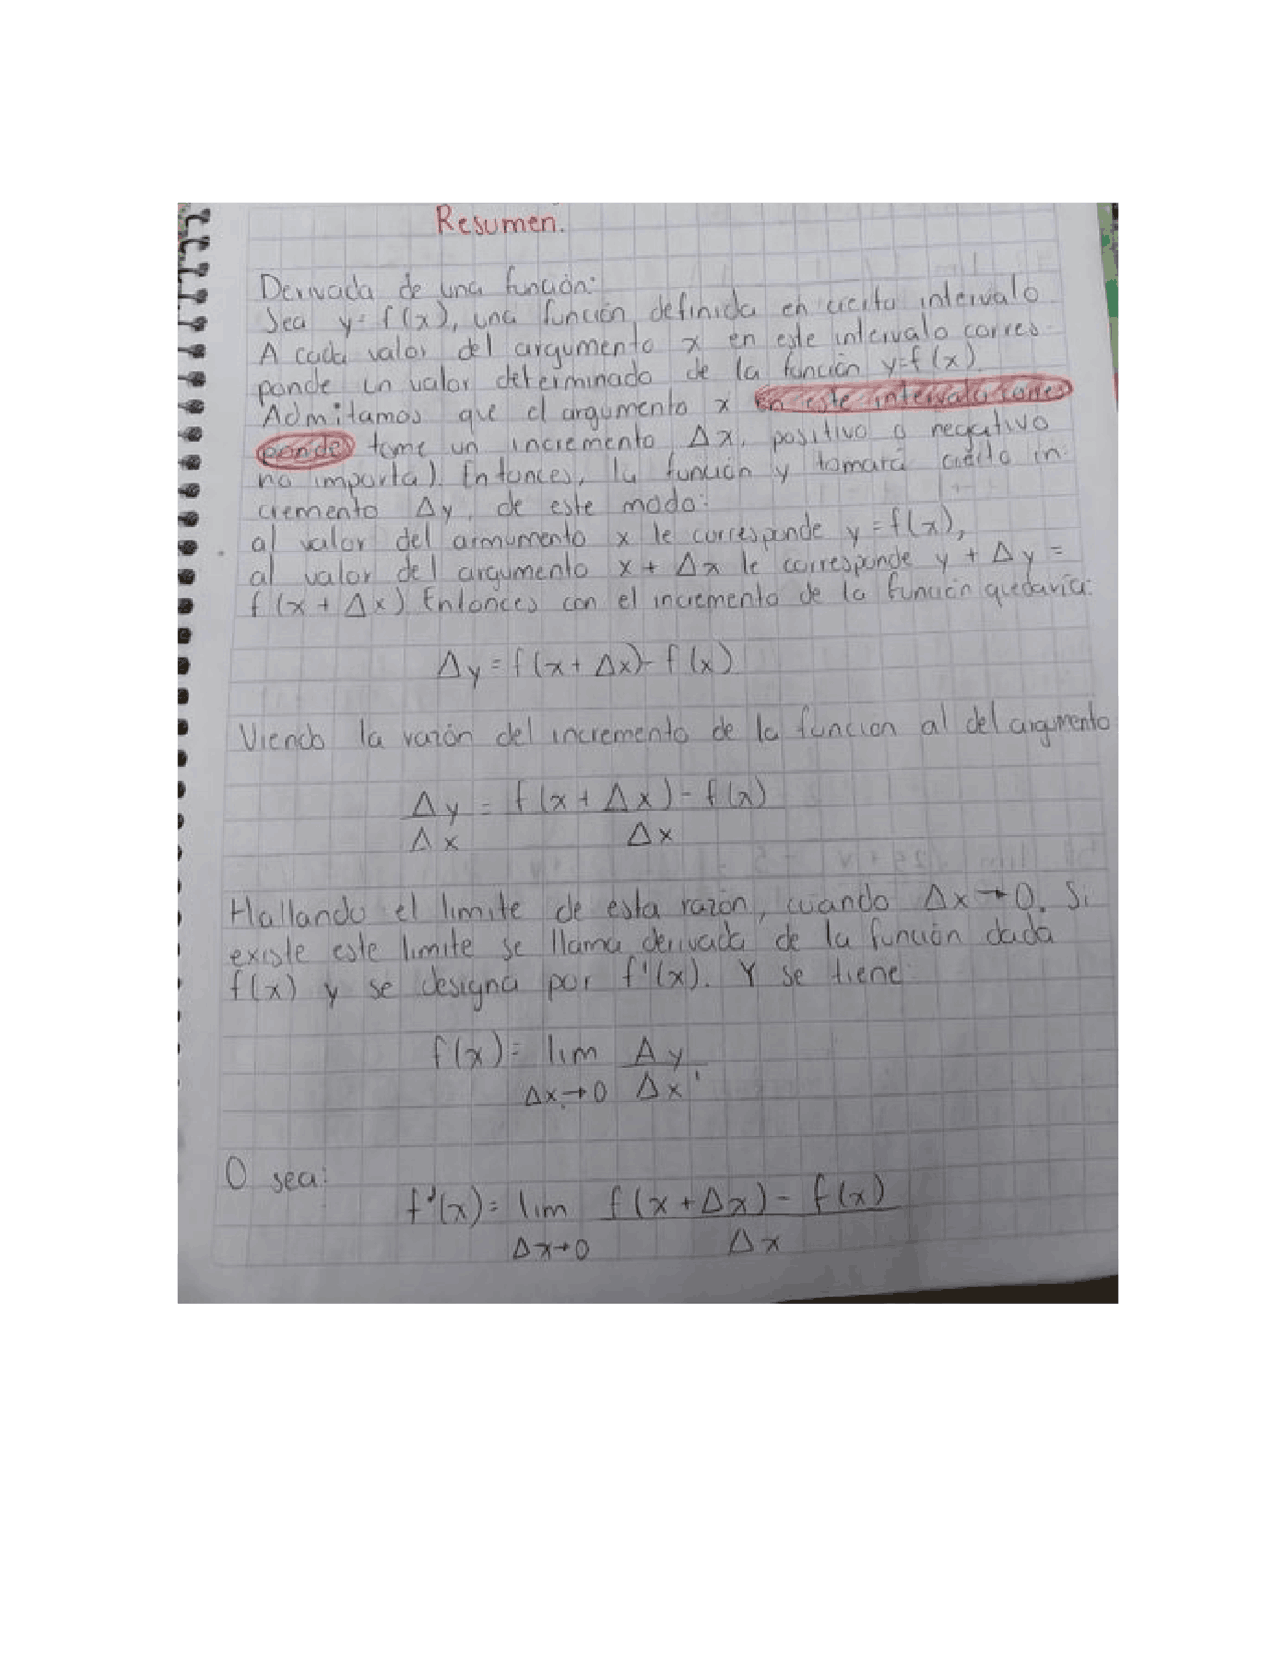 Resumen.
Derivada de una función:
Sea y=f(x), una función definida en cierto intervalo.
A cada valor del argumento x en este intervalo corres-
ponde un valor determinado de la función y=f(x).
Admitamos que el argumento x en este intervalo corres
ponde tome un incremento Δx, positivo o negativo
no importa). Entonces, la función y tomará cierto in-
cremento Δy, de este modo:
al valor del armumento x le corresponde y = f(x),
al valor del argumento x + Δx le corresponde y + Δy =
f(x + Δx). Entonces con el incremento de la función quedaría:
Δy = f(x + Δx) - f(x)
Viendo la razón del incremento de la funcion al del argumento
Δy = f(x + Δx) - f(x)
Δx Δx
Hallando el limite de esta razón, cuando Δx → 0. Si
existe este limite se llama derivada de la función dada
f(x) y se designa por f'(x). Y se tiene:
f(x) = lim Δy
Δx→0 Δx,
O sea:
f'(x) = lim f(x + Δx) - f(x)
Δx→0 Δx